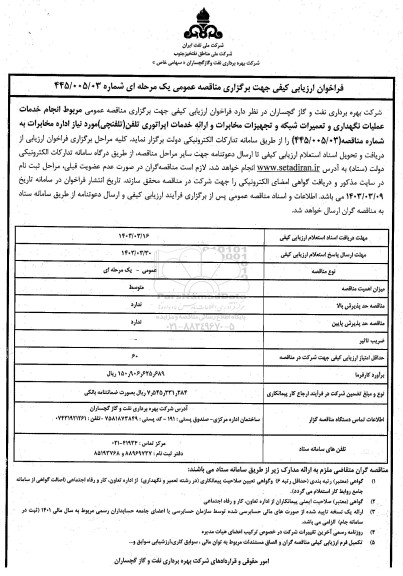 شرکت ملی نفت ایران
شرکت ملی مناطق نفتخیز جنوب
شرکت بهره برداری نفت و گاز گچساران « سهامی خاص »
فراخوان ارزیابی کیفی جهت برگزاری مناقصه عمومی یک مرحله ای شماره ۴۴۵/۰۰۵/۰۳
شرکت بهره برداری نفت و گاز گچساران در نظر دارد فراخوان ارزیابی کیفی جهت برگزاری مناقصه عمومی مربوط انجام خدمات
عملیات نگهداری و تعمیرات شبکه و تجهیزات مخابرات و ارائه خدمات اپراتوری تلفن(تلفنچی)مورد نیاز اداره مخابرات به
شماره مناقصه(۴۴۵/۰۰۵/۰۳) را از طریق سامانه تدارکات الکترونیکی دولت برگزار نماید. کلیه مراحل برگزاری فراخوان ارزیابی از
دریافت و تحویل اسناد استعلام ارزیابی کیفی تا ارسال دعوتنامه جهت سایر مراحل مناقصه، از طریق درگاه سامانه تدارکات الکترونیکی
دولت (ستاد) به آدرس www.setadiran.ir انجام خواهد شد. لازم است مناقصه‌گران در صورت عدم عضویت قبلی، مراحل ثبت نام
در سایت مذکور و دریافت گواهی امضای الکترونیکی را جهت شرکت در مناقصه محقق سازند. تاریخ انتشار فراخوان در سامانه تاریخ
۱۴۰۳/۰۳/۰۹ می باشد. اطلاعات و اسناد مناقصه عمومی پس از برگزاری فرآیند ارزیابی کیفی و ارسال دعوتنامه از طریق سامانه ستاد
به مناقصه گران ارسال خواهد شد.
مهلت دریافت اسناد استعلام ارزیابی کیفی ۱۴۰۳/۰۳/۱۶
مهلت ارسال پاسخ استعلام ارزیابی کیفی ۱۴۰۳/۰۳/۳۰
نوع مناقصه عمومی - یک مرحله ای
میزان اهمیت مناقصه متوسط
مناقصه حد پذیرش بالا ندارد
مناقصه حد پذیرش پایین ندارد
ضریب تاثیر -
حداقل امتیاز ارزیابی کیفی جهت شرکت در مناقصه ۶۰
برآورد کارفرما ۱۵۰٫۹۰۶٫۶۲۵٫۶۸۹ ریال
نوع و مبلغ تضمین شرکت در فرآیند ارجاع کار پیمانکاری ۷٫۵۴۵٫۳۳۱٫۲۸۴ ریال بصورت ضمانتنامه بانکی
اطلاعات تماس دستگاه مناقصه گزار آدرس شرکت بهره برداری نفت و گاز گچساران
ساختمان اداره مرکزی- صندوق پستی : ۱۹۱ - کد پستی : ۷۵۸۱۸۷۳۸۴۹ - تلفن :
تلفن های سامانه ستاد مرکز تماس : ۴۱۹۳۴-۰۲۱
دفتر ثبت نام : ۸۸۹۶۹۷۳۷ و ۸۵۱۹۳۷۶۸
مناقصه گران متقاضی ملزم به ارائه مدارک زیر از طریق سامانه ستاد می باشند:
۱) گواهی (معتبر) رتبه بندی (حداقل رتبه ۶) و گواهی تعیین صلاحیت پیمانکاری (در رشته تعمیر و نگهداری) از اداره تعاون، کار و رفاه اجتماعی (اصالت گواهی از سامانه
جامع روابط کار استعلام می گردد).
۲) گواهی (معتبر) صلاحیت ایمنی پیمانکاران از اداره تعاون، کار و رفاه اجتماعی
۳) ارائه یک نسخه تایید شده از صورت های مالی حسابرسی شده توسط سازمان حسابرسی یا اعضای جامعه حسابداران رسمی مربوط به سال مالی ۱۴۰۱ (ثبت در
سامانه جام) الزامی می باشد.
۴) روزنامه رسمی آخرین تغییرات شرکت در خصوص ترکیب اعضای هیات مدیره
۵) تکمیل فرم ارزیابی کیفی مناقصه گران و الصاق مستندات مربوط به توان مالی ، سوابق کاری،ارزشیابی سوابق و...
امور حقوقی و قراردادهای شرکت بهره برداری نفت و گاز گچساران